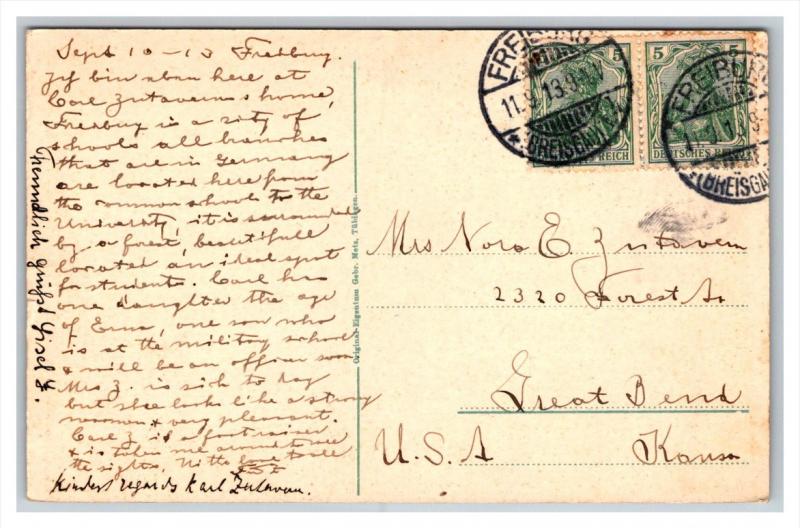 Sept 10 - 13 Freiburg.
Ich bin eben here at
Carl Zutaverns home,
Freiburg is a city of
schools all branches
that are in Germany
are located here from
the common schools to the
University, it is surrounded
by a forest, beautifull
located an ideal spot
for students. Carl has
one daughter the age
of Erna, one son who
is at the military school
& will be an officer soon
Mrs Z. is sick to day
but she looks like a strong
woman & very pleasant.
Carl Z is a
& is taken me around to see
the sights. With love to all
Kindest regards Karl Zutavern.
Freundlich grüßt Z.
Original-Eigentum Gebr. Metz, Tübingen.
FREIBURG
11.9.13.9-
(BREISGAU)
5
5
DEUTSCHES REICH
FREIBURG
(BREISGAU)
Mrs Nora E. Zutavern
2320 Forest Av
Great Bend
U.S.A Kansas